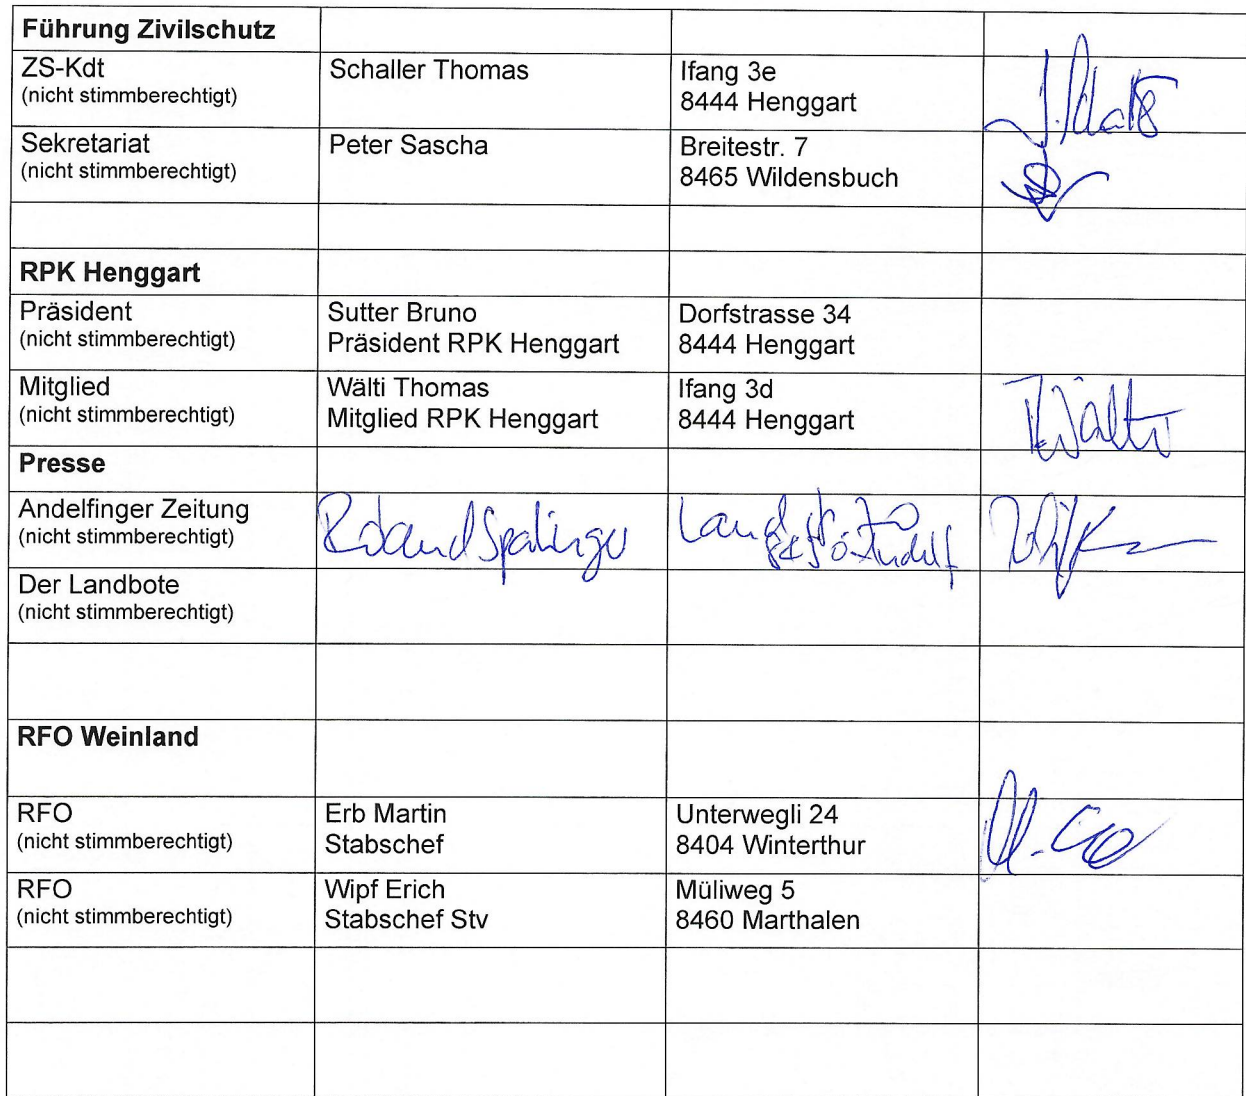 Führung Zivilschutz
ZS-Kdt
(nicht stimmberechtigt)
Schaller Thomas
Ifang 3e
8444 Henggart
Sekretariat
(nicht stimmberechtigt)
Peter Sascha
Breitestr. 7
8465 Wildensbuch
RPK Henggart
Präsident
(nicht stimmberechtigt)
Sutter Bruno
Präsident RPK Henggart
Dorfstrasse 34
8444 Henggart
Mitglied
(nicht stimmberechtigt)
Wälti Thomas
Mitglied RPK Henggart
Ifang 3d
8444 Henggart
T. Wälti
Presse
Andelfinger Zeitung
(nicht stimmberechtigt)
Roland Spalinger
Der Landbote
(nicht stimmberechtigt)
RFO Weinland
RFO
(nicht stimmberechtigt)
Erb Martin
Stabschef
Unterwegli 24
8404 Winterthur
RFO
(nicht stimmberechtigt)
Wipf Erich
Stabschef Stv
Müliweg 5
8460 Marthalen